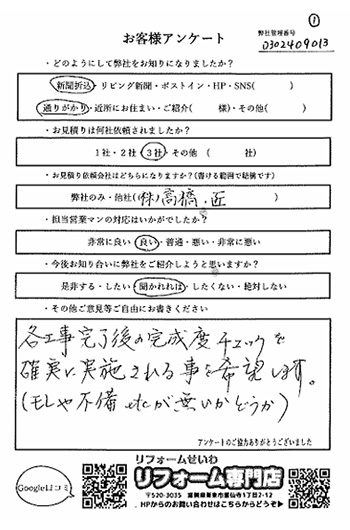 ①
お客様アンケート
弊社管理番号
0302409013
・どのようにして弊社をお知りになりましたか？
新聞折込・リビング新聞・ポストイン・HP・SNS(　　　)
通りがかり・近所にお住まい・ご紹介(　　様)・その他(　　　)
・お見積りは何社依頼されましたか？
1社・2社・3社・その他　(　　　社)
・お見積り依頼会社はどちらになりますか？(書ける範囲で結構です)
弊社のみ・他社((株)高橋・匠　　　)
・担当営業マンの対応はいかがでしたか？
非常に良い・良い・普通・悪い・非常に悪い
・今後お知り合いに弊社をご紹介しようと思いますか？
是非する・したい・聞かれれば・したくない・絶対しない
・その他ご意見等ご自由にお書きください
各工事完了後の完成度チェックを
確実に実施される事を希望します。
(モレや不備 etcが無いかどうか)
アンケートのご協力ありがとうございました
Google口コミ
リフォームせいわ
リフォーム専門店
〒520-3035
HPからのお問い合わせはこちらからどうぞ